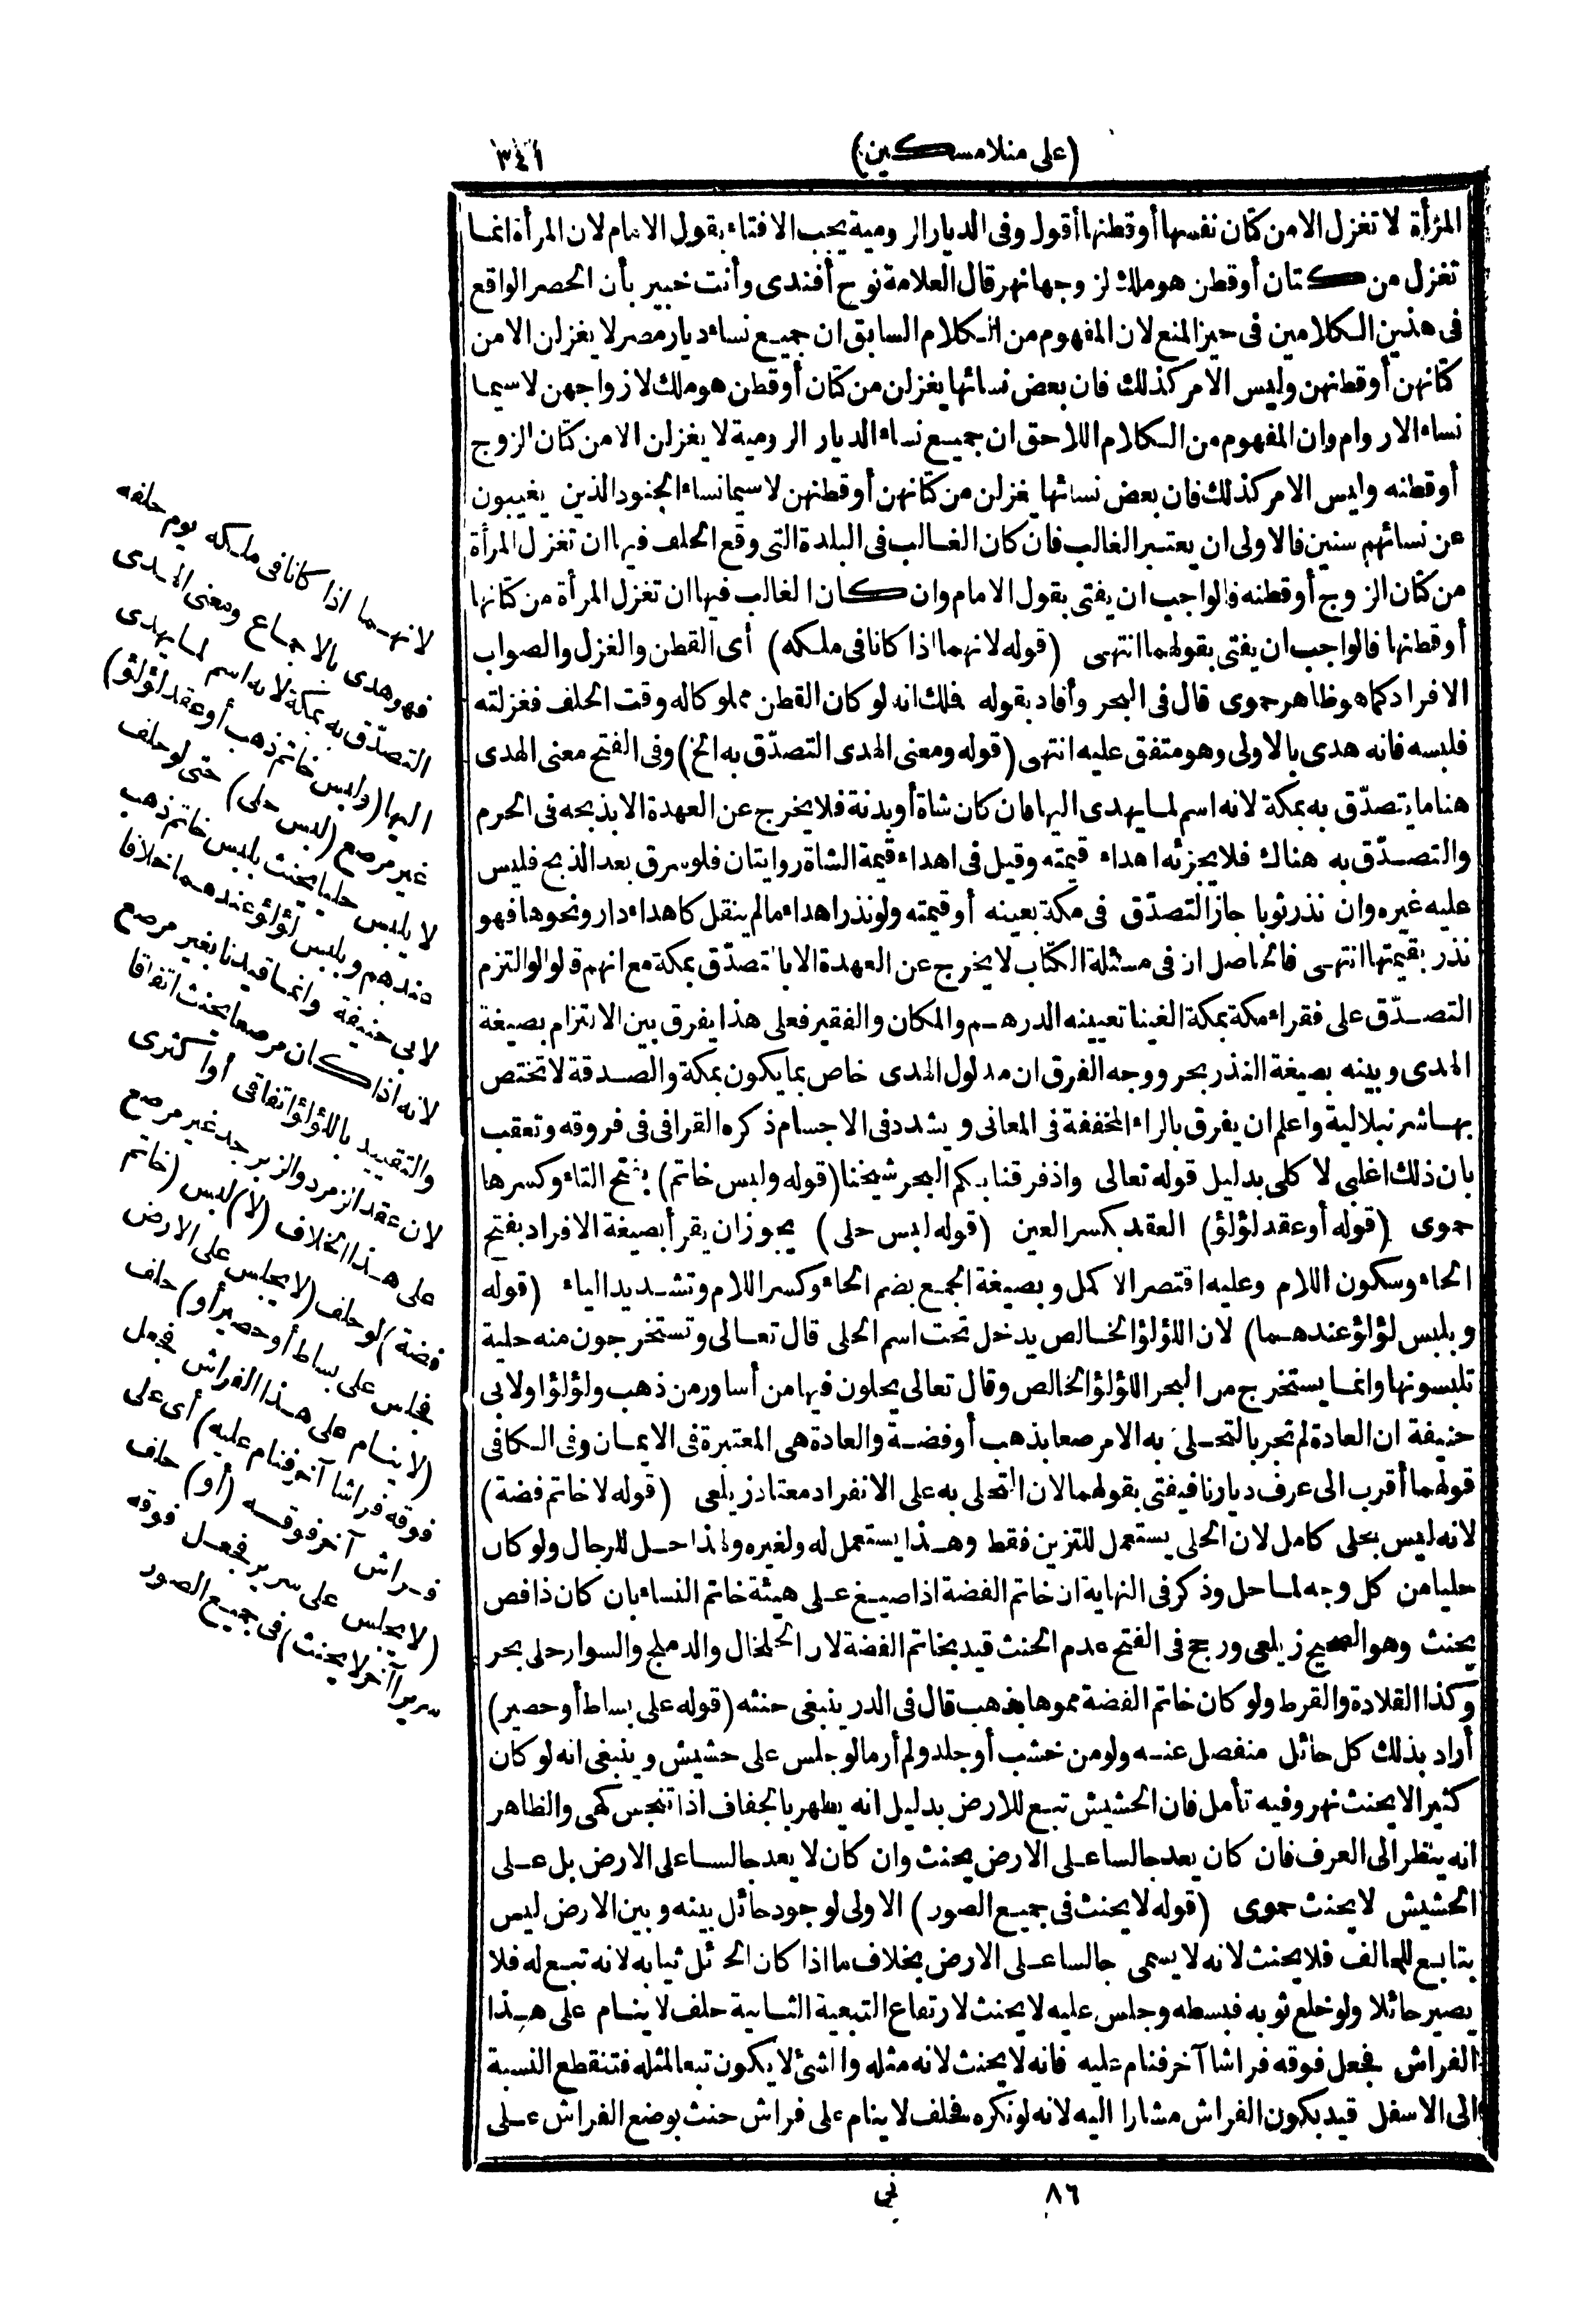 (على منلا مسكين)
٣٤١
المرأة لا تغزل الا من كتان نفسها أو قطنها أقول وفى الديار الرومية يجب الافتاء بقول الامام لان المرأة انما
تغزل من كتان أو قطن هو ملك لزوجها نهر قال العلامة نوح أفندى وأنت خبير بأن الحصر الواقع
فى هذين الكلامين فى حيز المنع لان المفهوم من الكلام السابق ان جميع نساء ديار مصر لا يغزلن الا من
كتانهن أو قطنهن وليس الامر كذلك فان بعض نسائها يغزلن من كتان أو قطن هو ملك لازواجهن لا سيما
نساء الاروام وان المفهوم من الكلام اللاحق ان جميع نساء الديار الرومية لا يغزلن الا من كتان الزوج
أو قطنه وليس الامر كذلك فان بعض نسائها يغزلن من كتانهن أو قطنهن لا سيما نساء الجنود الذين يغيبون
عن نسائهم سنين فالاولى ان يعتبر الغالب فان كان الغالب فى البلدة التى وقع الحلف فيها ان تغزل المرأة
من كتان الزوج أو قطنه فالواجب ان يفتى بقول الامام وان كان الغالب فيها ان تغزل المرأة من كتانها
أو قطنها فالواجب ان يفتى بقولهما انتهى (قوله لانهما اذا كانا فى ملكه) أى القطن والغزل والصواب
الافراد كما هو ظاهر حموى قال فى البحر وأفاد بقوله فلك انه لو كان القطن مملوكا له وقت الحلف فغزلته
فلبسه فانه هدى بالاولى وهو متفق عليه انتهى (قوله ومعنى الهدى التصدّق به الخ) وفى الفتح معنى الهدى
هنا ما يتصدّق به بمكة لانه اسم لما يهدى اليها فان كان شاة أو بدنة فلا يخرج عن العهدة الا بذبحه فى الحرم
والتصدّق به هناك فلا يجزئه اهداء قيمته وقيل فى اهداء قيمة الشاة روايتان فلو سرق بعد الذبح فليس
عليه غيره وان نذر ثوبا جاز التصدّق فى مكة بعينه أو قيمته ولو نذر اهداء ما لم ينقل كاهداء دار ونحوها فهو
نذر بقيمتها انتهى فالحاصل ان فى مسئلة الكتاب لا يخرج عن العهدة الا بالتصدّق بمكة مع انهم قالوا لو التزم
التصدّق على فقراء مكة بمكة الغينا تعيينه الدرهم والمكان والفقير فعلى هذا يفرق بين الالتزام بصيغة
الهدى وبينه بصيغة النذر بحر ووجه الفرق ان مدلول الهدى خاص بما يكون بمكة والصدقة لا تختص
بها شرنبلالية واعلم ان يفرق بالراء المخففة فى المعانى ويشدد فى الاجسام ذكره القرافى فى فروقه وتعقب
بان ذلك اغلبى لا كلى بدليل قوله تعالى واذ فرقنا بكم البحر شيخنا (قوله ولبس خاتم) بفتح التاء وكسرها
حموى (قوله أو عقد لؤلؤ) العقد بكسر العين (قوله لبس حلى) يجوز ان يقرأ بصيغة الافراد بفتح
الحاء وسكون اللام وعليه اقتصر الاكمل وبصيغة الجمع بضم الحاء وكسر اللام وتشديد الياء (قوله
وبلبس لؤلؤ عندهما) لان اللؤلؤ الخالص يدخل تحت اسم الحلى قال تعالى وتستخرجون منه حلية
تلبسونها وانما يستخرج من البحر اللؤلؤ الخالص وقال تعالى يحلون فيها من أساور من ذهب ولؤلؤا ولابى
حنيفة ان العادة لم تجر بالتحلى به الا مرصعا بذهب أو فضة والعادة هى المعتبرة فى الايمان وفى الكافى
قولهما أقرب الى عرف ديارنا فيفتى بقولهما لان التحلى به على الانفراد معتاد زيلعى (قوله لا خاتم فضة)
لانه ليس بحلى كامل لان الحلى يستعمل للتزين فقط وهذا يستعمل له ولغيره ولهذا حل للرجال ولو كان
حليا من كل وجه لما حل وذكر فى النهاية ان خاتم الفضة اذا صيغ على هيئة خاتم النساء بان كان ذا فص
يحنث وهو الصحيح زيلعى ورجح فى الفتح عدم الحنث قيد بخاتم الفضة لان الخلخال والدملج والسوار حلى بحر
وكذا القلادة والقرط ولو كان خاتم الفضة مموها بذهب قال فى الدر ينبغى حنثه (قوله على بساط أو حصير)
أراد بذلك كل حائل منفصل عنه ولو من خشب أو جلد ولم أر ما لو جلس على حشيش وينبغى انه لو كان
كثيرا لا يحنث نهر وفيه تأمل فان الحشيش تبع للارض بدليل انه يطهر بالجفاف اذا تنجس كهى والظاهر
انه ينظر الى العرف فان كان يعد جالسا على الارض يحنث وان كان لا يعد جالسا على الارض بل على
الحشيش لا يحنث حموى (قوله لا يحنث فى جميع الصور) الاولى لوجود حائل بينه وبين الارض ليس
بتابع للحالف فلا يحنث لانه لا يسمى جالسا على الارض بخلاف ما اذا كان الحائل ثيابه لانه تبع له فلا
يصير حائلا ولو خلع ثوبه فبسطه وجلس عليه لا يحنث لارتفاع التبعية الثانية حلف لا ينام على هذا
الفراش فجعل فوقه فراشا آخر فنام عليه فانه لا يحنث لانه مثله والشئ لا يكون تبعا لمثله فتنقطع النسبة
الى الاسفل قيد بكون الفراش مشارا اليه لانه لو نكره فحلف لا ينام على فراش حنث بوضع الفراش على
لانهما اذا كانا فى ملكه يوم حلفه
فهو هدى بالاجماع ومعنى الهدى
التصدّق به بمكة لانه اسم لما يهدى
اليها (ولبس خاتم ذهب أو عقد لؤلؤ)
غير مرصع (لبس حلى) حتى لو حلف
لا يلبس حليا يحنث بلبس خاتم ذهب
عندهم وبلبس لؤلؤ عندهما خلافا
لابى حنيفة وانما قيدنا بغير مرصع
لانه اذا كان مرصعا يحنث اتفاقا
والتقييد باللؤلؤ اتفاقى أو أكثرى
لان عقد الزمرد والزبرجد غير مرصع
على هذا الخلاف (لا) لبس (خاتم
فضة) لو حلف (لا يجلس على الارض
فجلس على بساط أو حصير أو) حلف
(لا ينام على هذا الفراش فجعل
فوقه فراشا آخر فنام عليه) أى على
فراش آخر فوقه (أو) حلف
(لا يجلس على سرير فجعل فوقه
سريرا آخر لا يحنث) فى جميع الصور
٨٦
نى